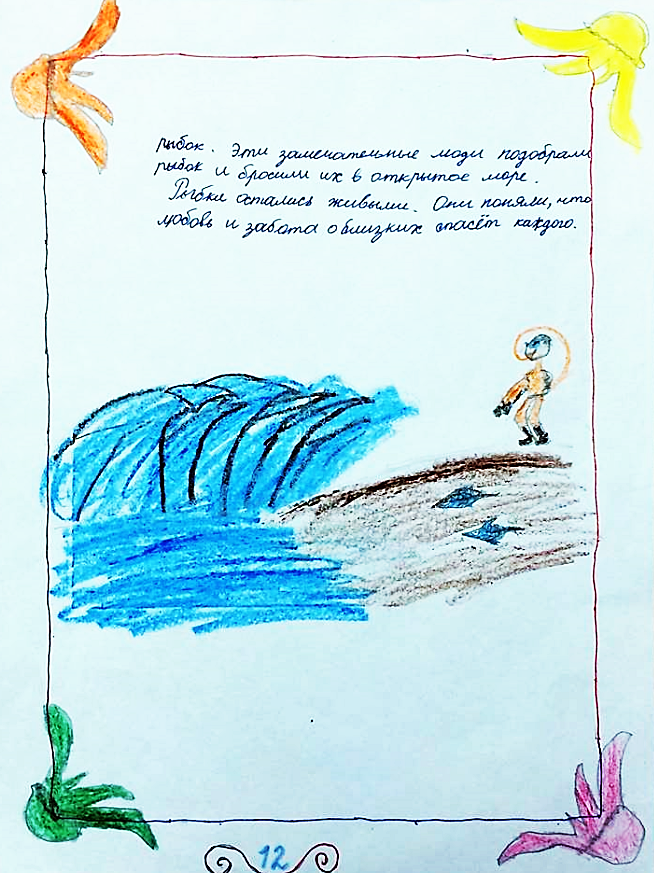 рыбок. Эти замечательные люди подобрали
рыбок и бросили их в открытое море.
Рыбки остались живыми. Они поняли, что
любовь и забота о близких спасёт каждого.
12